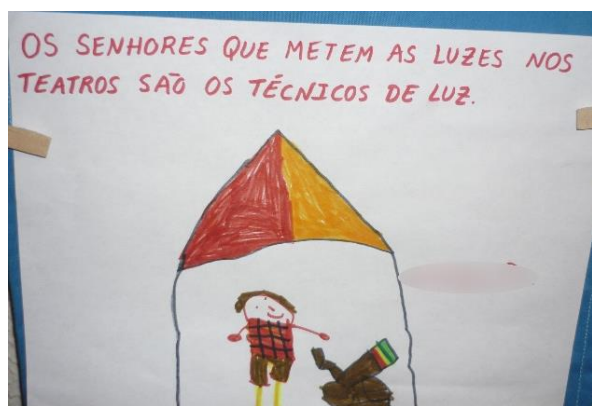 OS SENHORES QUE METEM AS LUZES NOS
TEATROS SÃO OS TÉCNICOS DE LUZ.